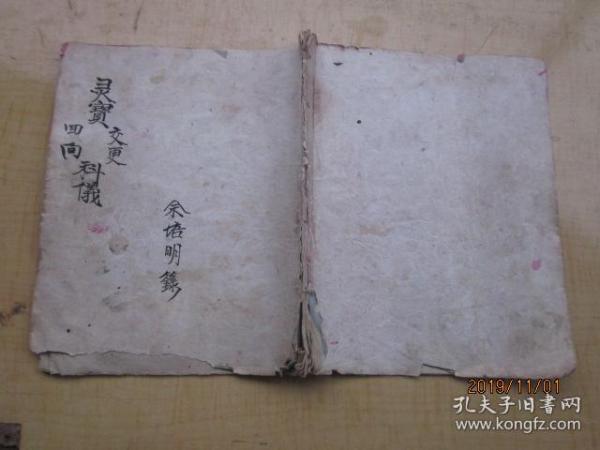 灵寶交更四向科儀
余培明錄
2019/11/01
孔夫子旧書网
www.kongfz.com